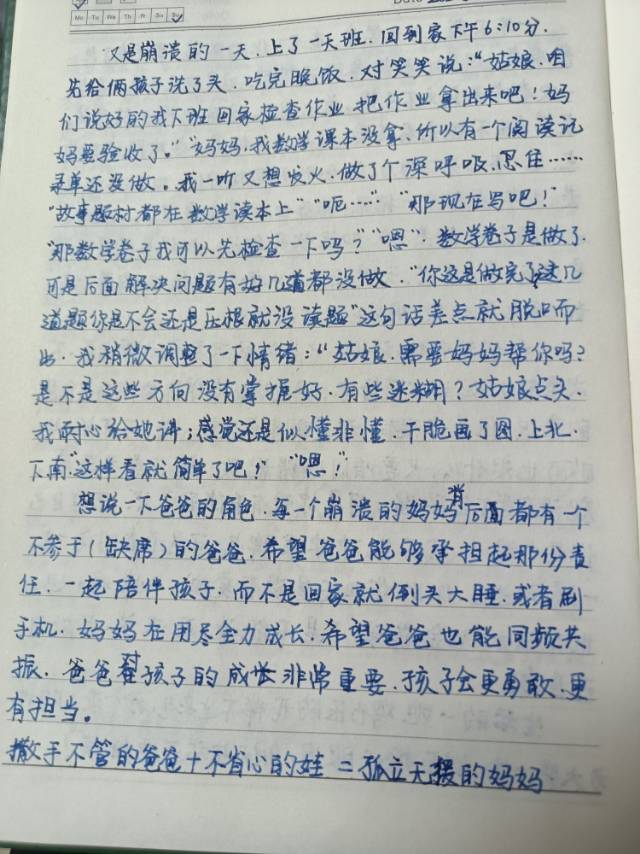 Mo Tu We Th Fr Sa Su
Date
又是崩溃的一天,上了一天班,回到家下午6:10分.
先给俩孩子洗了头,吃完晚饭,对笑笑说:“姑娘,咱
们说好的我下班回家检查作业,把作业拿出来吧!妈
妈要验收了。”“妈妈,我数学课本没拿,所以有一个阅读记
录单还没做。我一听又想发火,做了个深呼吸,忍住……
“故事题材都在数学读本上”“呃……”“那现在写吧!”
“那数学卷子我可以先检查一下吗?”“嗯”.数学卷子是做了,
可是后面解决问题有好几道都没做.“你这是做完了,这几
道题你是不会还是压根就没读题”这句话差点就脱口而
出.我稍微调整了一下情绪:“姑娘.需要妈妈帮你吗?
是不是这些方向没有掌握好.有些迷糊?姑娘点头.
我耐心给她讲;感觉还是似懂非懂.干脆画了图.上北.
下南“这样看就简单了吧!”“嗯!”
想说一下爸爸的角色.每一个崩溃的妈妈背后面都有一个
不参于(缺席)的爸爸.希望爸爸能够承担起那份责
任.一起陪伴孩子.而不是回家就倒头大睡.或者刷
手机.妈妈在用尽全力成长.希望爸爸也能同频共
振.爸爸对孩子的成长非常重要.孩子会更勇敢.更
有担当。
撒手不管的爸爸+不省心的娃=孤立无援的妈妈